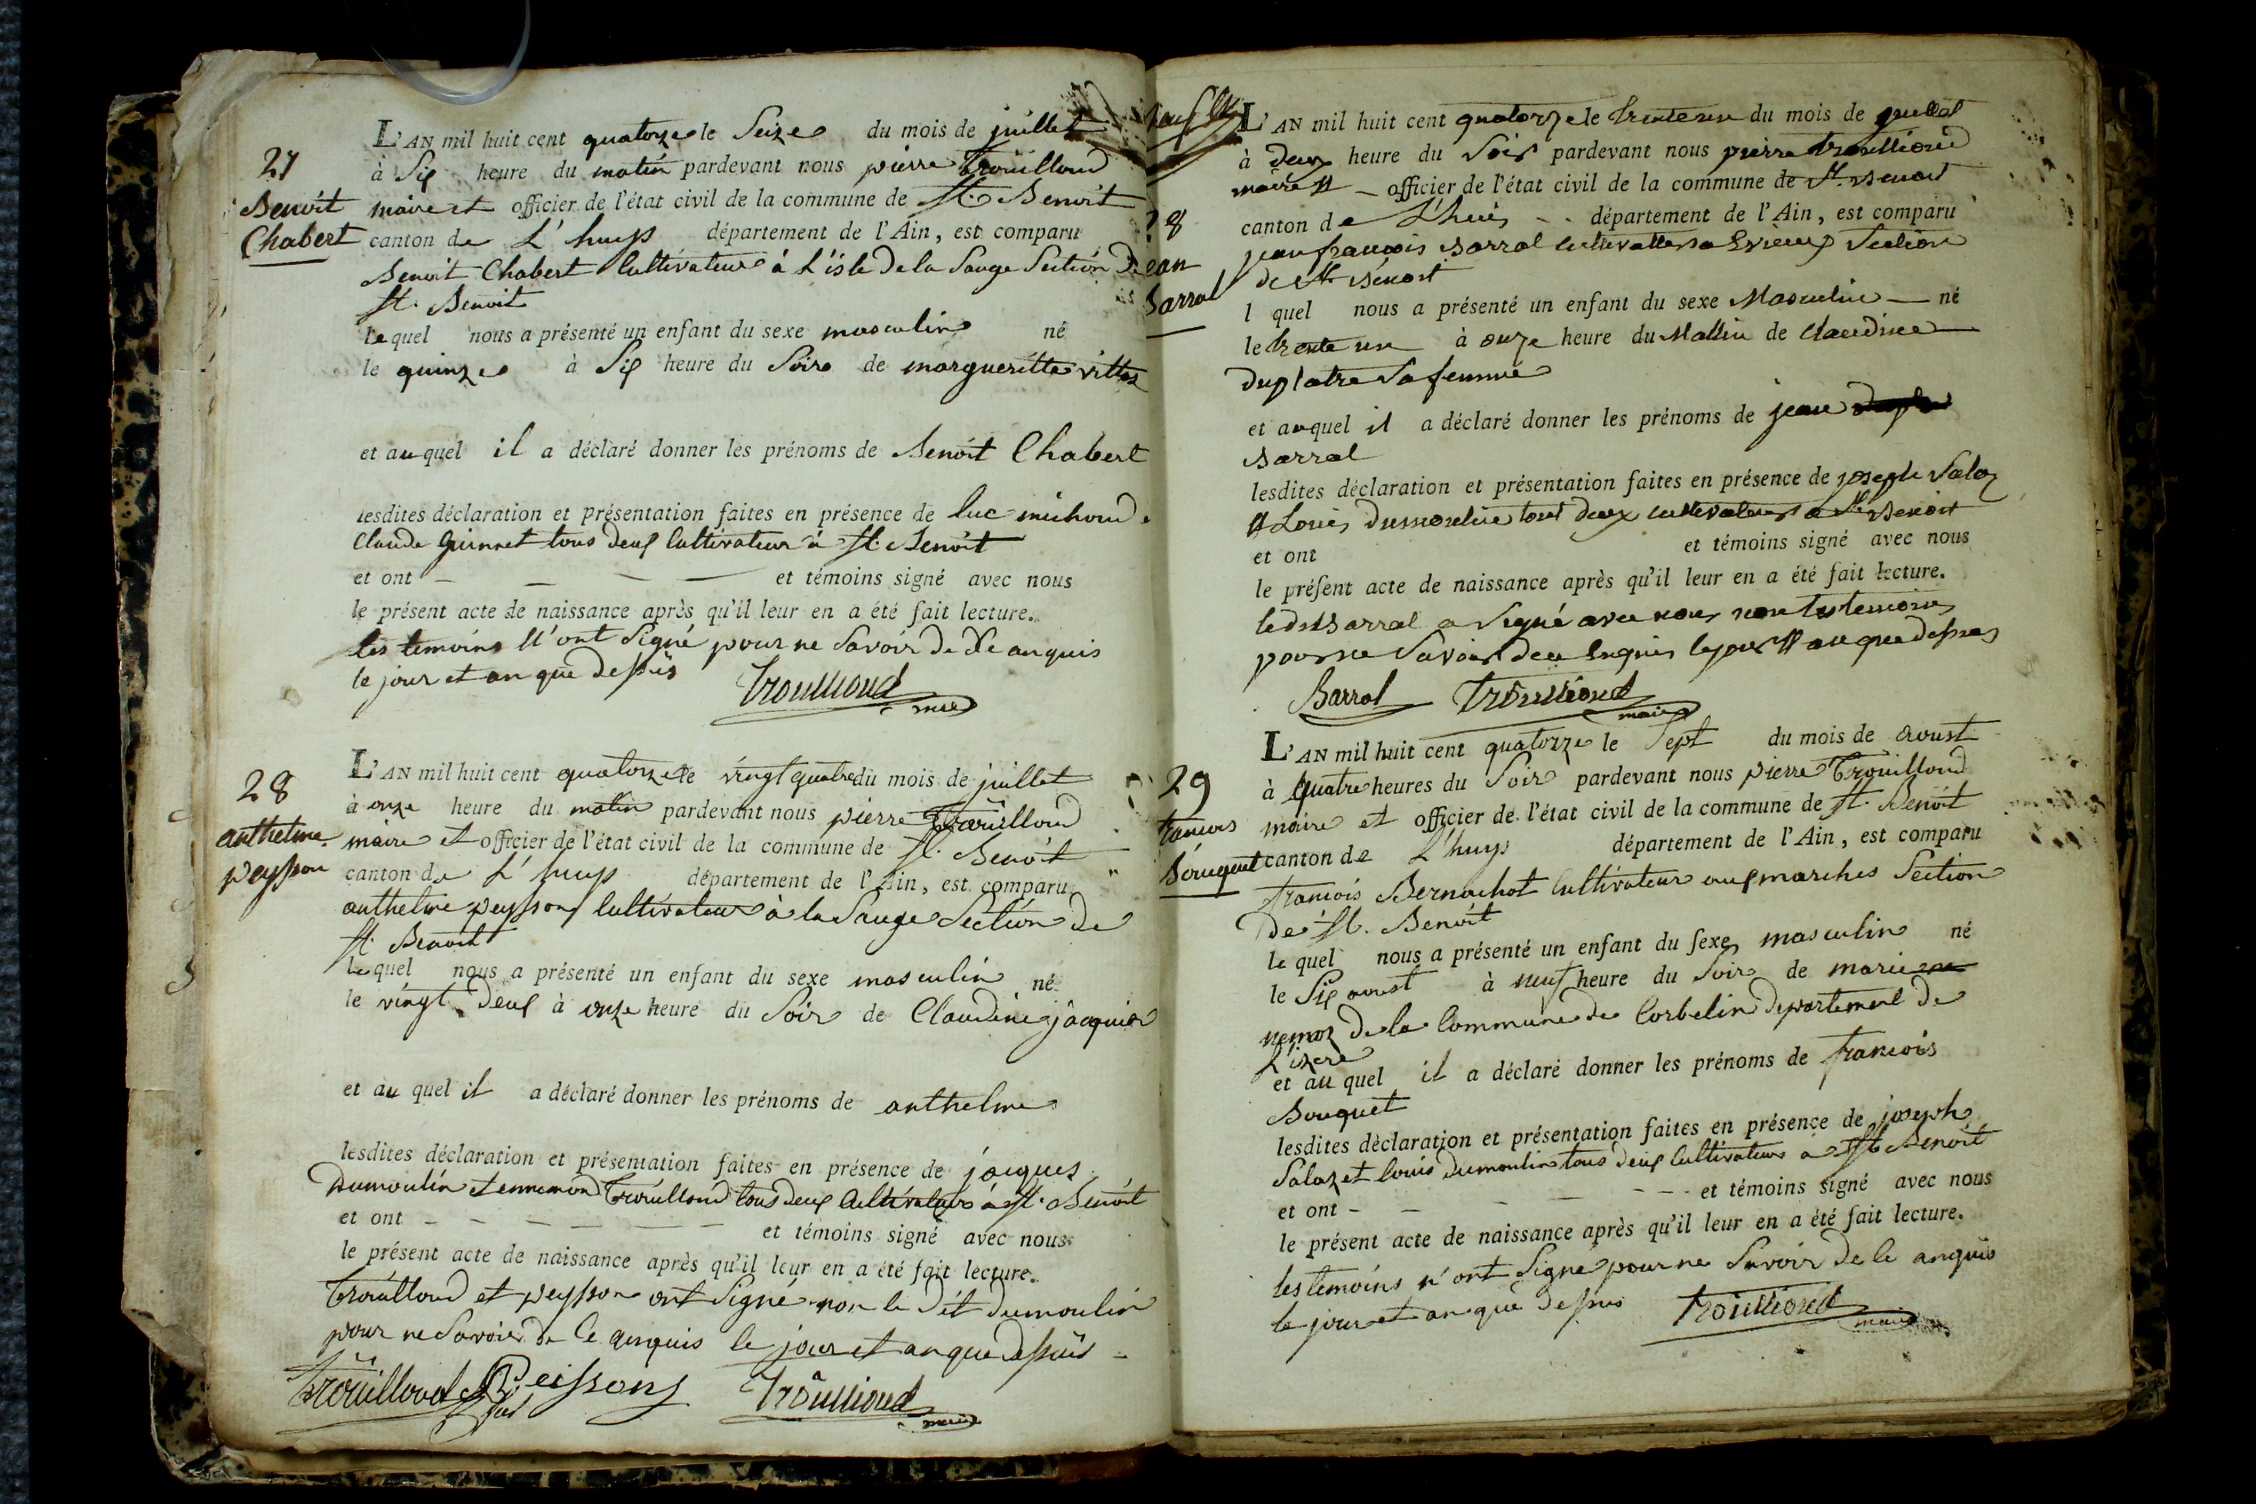 27
Benoit
Chabert
L'AN mil huit cent quatorze le Seize du mois de juillet
à Six heure du matin pardevant nous pierre Trouilloud
maire et officier de l'état civil de la commune de St. Benoit
canton de L'huys département de l'Ain, est comparu
Benoit Chabert Cultivateur à L'isle de la Sauge Section De
St. Benoit
lequel nous a présenté un enfant du sexe masculin né
le quinze à Six heure du Soir de margueritte vittoz
et au quel il a déclaré donner les prénoms de Benoit Chabert
lesdites déclaration et présentation faites en présence de luc michoud
Claude guinnet tous deux Cultivateur à St. Benoit
et ont — — — — et témoins signé avec nous
le présent acte de naissance après qu'il leur en a été fait lecture.
les temoins N'ont Signé pour ne Savoir De Ce anquis
le jour et an que Dessus
Trouilloud
maire
28
anthelme
peysson
L'AN mil huit cent quatorze le vingt quatre du mois de juillet
à onze heure du matin pardevant nous pierre Trouilloud
maire et officier de l'état civil de la commune de St. Benoit
canton de L'huys département de l'Ain, est comparu
anthelme peysson Cultivateur à la Sauge Section De
St. Benoit
lequel nous a présenté un enfant du sexe masculin né
le vingt Deux à onze heure du Soir de Claudine jacquier
et au quel il a déclaré donner les prénoms de anthelme
lesdites déclaration et présentation faites en présence de jacques
Dumoulin et ennemond Trouilloud tous deux Cultivateurs à St. Benoit
et ont — — — — — — et témoins signé avec nous
le présent acte de naissance après qu'il leur en a été fait lecture.
Trouilloud et peysson ont Signé non le Dit Dumoulin
pour ne Savoir De Ce anquis le jour et an que Dessus
Trouilloud Peissons Trouilloud
maire
28
Jean
Barral
L'AN mil huit cent quatorze le trente un du mois de juillet
à deux heure du Soir pardevant nous pierre trouilloud
maire et — officier de l'état civil de la commune de St. Benoit
canton de L'huis département de l'Ain, est comparu
jean françois Barral cultivatteur a Evieux Section
de St. Benoit
l quel nous a présenté un enfant du sexe Masculin — né
le trente un à onze heure du Mattin de Claudine
duplatre Sa femme
et auquel il a déclaré donner les prénoms de jean
Barral
lesdites déclaration et présentation faites en présence de joseph Salaz
et Louis dumoulin tout deux cultivateurs a St. Benoit
et ont et témoins signé avec nous
le présent acte de naissance après qu'il leur en a été fait lecture.
ledit Barral a Signé avec nous non les temoins
pour ne Savoir de ce Enquis le jour et an que dessus
Barral Trouilloud
maire
29
francois
Bouquet
L'AN mil huit cent quatorze le Sept du mois de aoust
à quatre heures du Soir pardevant nous pierre Trouilloud
maire et officier de l'état civil de la commune de St. Benoit
canton de L'huys département de l'Ain, est comparu
francois Bernachot Cultivateur aux marches Section
De St. Benoit
le quel nous a présenté un enfant du sexe masculin né
le Six aoust à neuf heure du Soir de marie
nemoz De la Commune de Corbelin departement De
L'izere
et au quel il a déclaré donner les prénoms de francois
Bouquet
lesdites déclaration et présentation faites en présence de joseph
Salaz et louis Dumoulin tous deux Cultivateurs à St Benoit
et ont — — — — — et témoins signé avec nous
le présent acte de naissance après qu'il leur en a été fait lecture.
les temoins n'ont Signé pour ne Savoir De Ce anquis
le jour et an que Dessus Trouilloud
maire